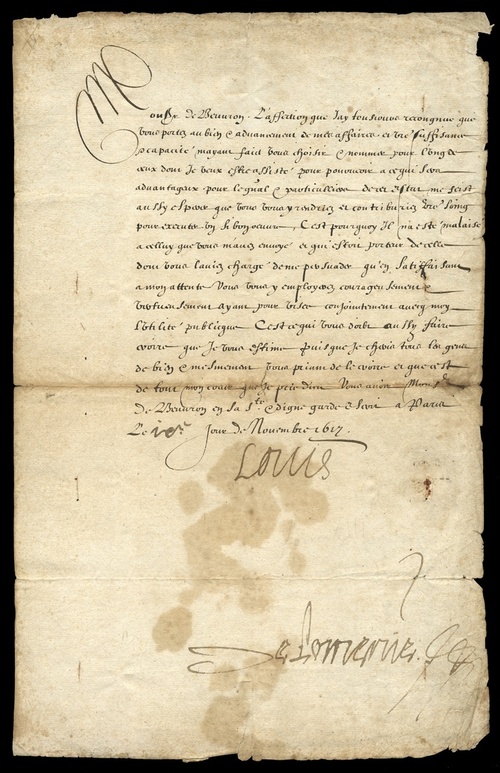 Mons.r de Beuvron. L'affection que j'ay tousiours recongnue que
vous portez au bien & aduancement de mes affaires. et v're suffisance
& capacité mayant faict vous choisir & nommer pour l'ung de
ceux dont Je veux estre assisté pour pouruoir a ce qui sera
aduantageux pour le g'nal & particullier de cet estat me faict
aussy esperer que vous vous y rendrez et contriburez v're soing
pour executer un si bon oeuure. C'est pourquoy Il n'a esté malaisé
a celluy que vous m'auez enuoyé et qui estoit porteur de celle
dont vous l'auiez chargé de me persuader qu'en satisfaisant
a mon attente Vous vous y employerez courageusement &
vertueusement ayant pour visee conjointement auecq moy
L'vtilité publicque C'est ce qui vous doibt aussy faire
croire que Je vous estime puisque Je choisis tous les gens
de bien & mesmement vous priant de le croire et que c'est
de tout mon coeur que Je prie dieu Vous auoir Mons.r
De Beuvron en sa s.te & digne garde Escrit a Paris
Le ix.e Jour de Nouembre 1617.
Louis
De Lomenie